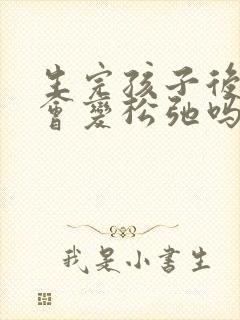 生完孩子後
會變松弛吗
我是小書生